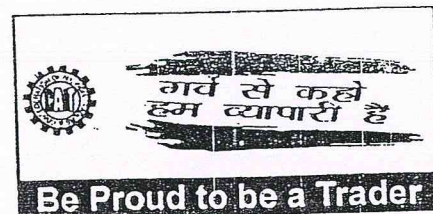 CAIT
गर्व से कहो
हम व्यापारी हैं
Be Proud to be a Trader